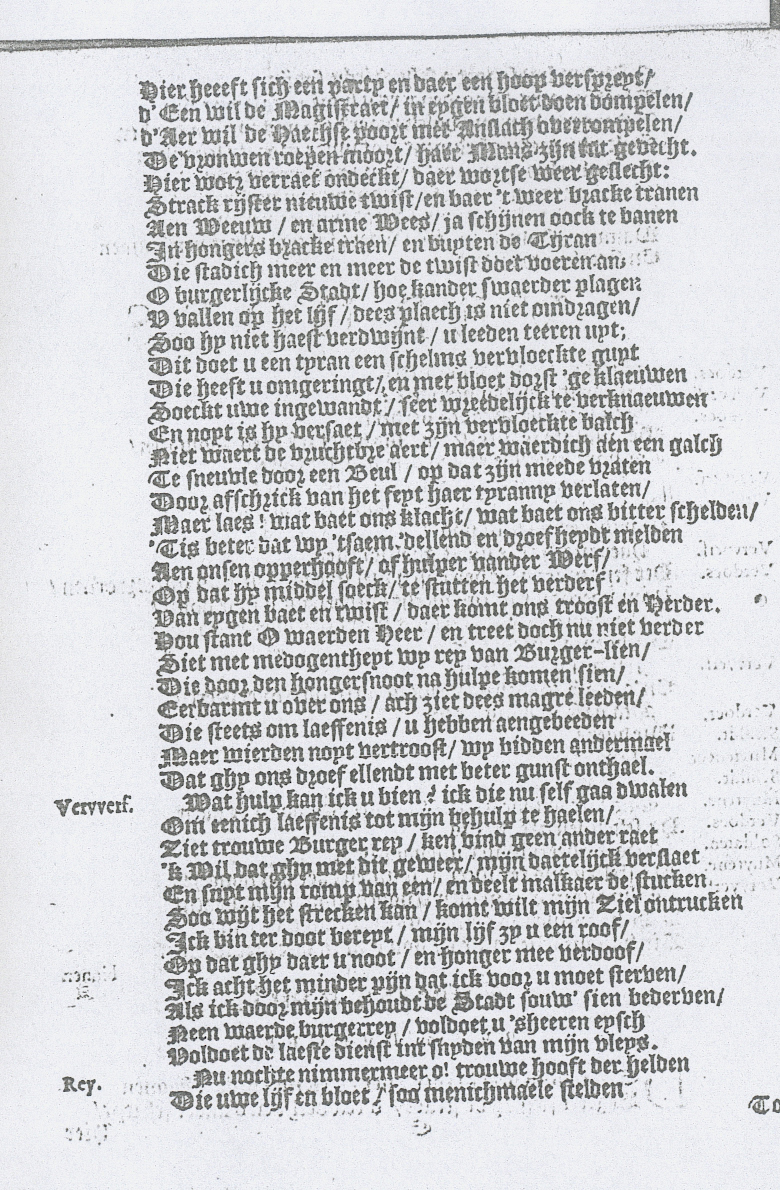 Hier heeeft sich een party en daer een hoop verspreyt/
d'Een wil de Magistraet/ in eygen bloet doen dompelen/
d'Aer wil de Haechse poort met Anslach overrompelen/
De vrouwen roepen moort/ haer Mans zijn tot gevecht.
Hier wort verraet ondeckt/ daer wortse weer geslecht:
Strack rijster nieuwe twist/ en baer 't weer bracke tranen
Aen Weeuw / en arme Wees/ ja schijnen oock te banen
In hongers bracke traen/ en buyten de Tyran
Die stadich meer en meer de twist doet voeren an,
O burgerlijcke Stadt/ hoe kander swaerder plagen
U vallen op het lijf / dees plaech is niet om dragen/
Soo hy niet haest verdwijnt / u leeden teeren uyt;
Dit doet u een tyran een schelms vervloeckte guyt
Die heeft u omgeringt/ en met bloet dorst 'ge klaeuwen
Soeckt uwe ingewandt / seer wreedelijck te verknaeuwen
En noyt is hy versaet / met zijn vervloeckte balch
Niet waert de vruchtbre aert/ maer waerdich den een galch
Te sneuvle door een Beul / op dat zijn meede vraten
Door afschrick van het feyt haer tyranny verlaten/
Maer laes! wat baet ons klacht/ wat baet ons bitter schelden/
'Tis beter dat wy 'tsaem 'dellend en droefheydt melden
Aen onsen opperhooft/ of hulper vander Werf/
Op dat hy middel soeck/ te stutten het verderf
Van eygen baet en twist / daer komt ons troost en Herder.
Hou stant O waerden Heer / en treet doch nu niet verder
Siet met medogentheyt wy rey van Burger-lien/
Die door den hongersnoot na hulpe komen sien/
Eerbarmt u over ons / ach ziet dees magre leeden/
Die steets om laeffenis / u hebben aengebeeden
Maer wierden noyt vertroost/ wy bidden andermael
Dat ghy ons droef ellendt met beter gunst onthael.
Vervverf. Wat hulp kan ick u bien? ick die nu self gaa dwalen
Om eenich laeffenis tot mijn behulp te haelen/
Ziet trouwe Burger rey / ken vind geen ander raet
'k Wil dat ghy met dit geweer/ mijn daetelijck verslaet
En snyt mijn romp van een/ en deelt malkaer de stucken
Soo wijt het strecken kan / komt wilt mijn Ziel ontrucken
Ick bin ter doot bereyt / mijn lijf zy u een roof/
Op dat ghy daer u noot / en honger mee verdoof/
Ick acht het minder pijn dat ick voor u moet sterven/
Als ick door mijn behoudt de Stadt souw' sien bederven/
Neen waerde burgerrey / voldoet u 'sheeren eysch
Voldoet de laeste dienst int snyden van mijn vleys.
Rey. Nu nochte nimmermeer o! trouwe hooft der helden
Die uwe lijf en bloet / soo menichmaele stelden
To